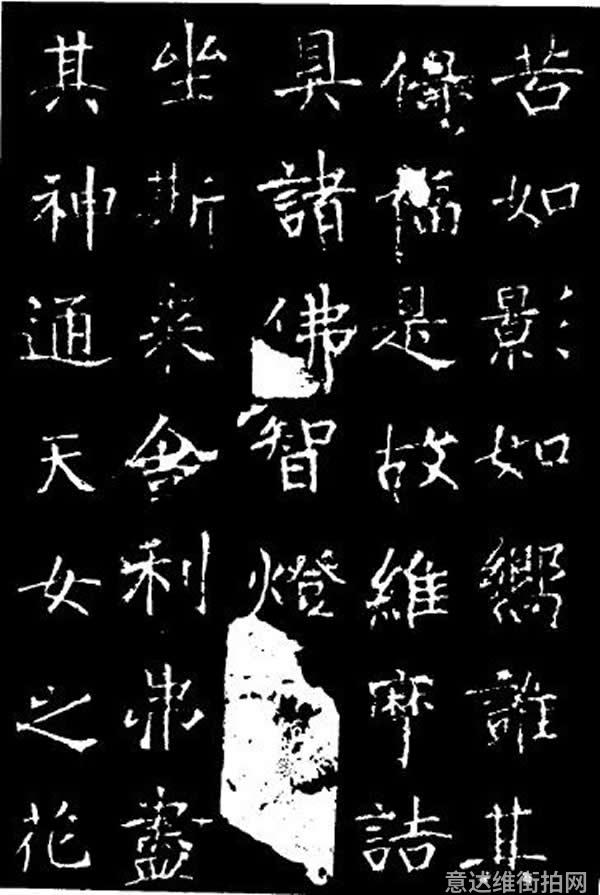 苦如影如嚮誰其
福是故維摩詰
具諸佛智燈
坐斯來舍利弗盡
其神通天女之花
意达维街拍网